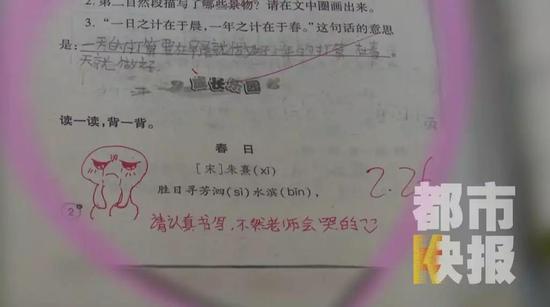 2. 第二自然段描写了哪些景物？请在文中圈画出来。
3. “一日之计在于晨，一年之计在于春。”这句话的意思
是：一天的打算要在早晨就做好，一年的打算在春
天就做好
成长乐园
读一读，背一背。
春日
[宋]朱熹(xī)
胜日寻芳泗(sì)水滨(bīn)，
2.26
2
请认真书写，不然老师会哭的
都市
快报